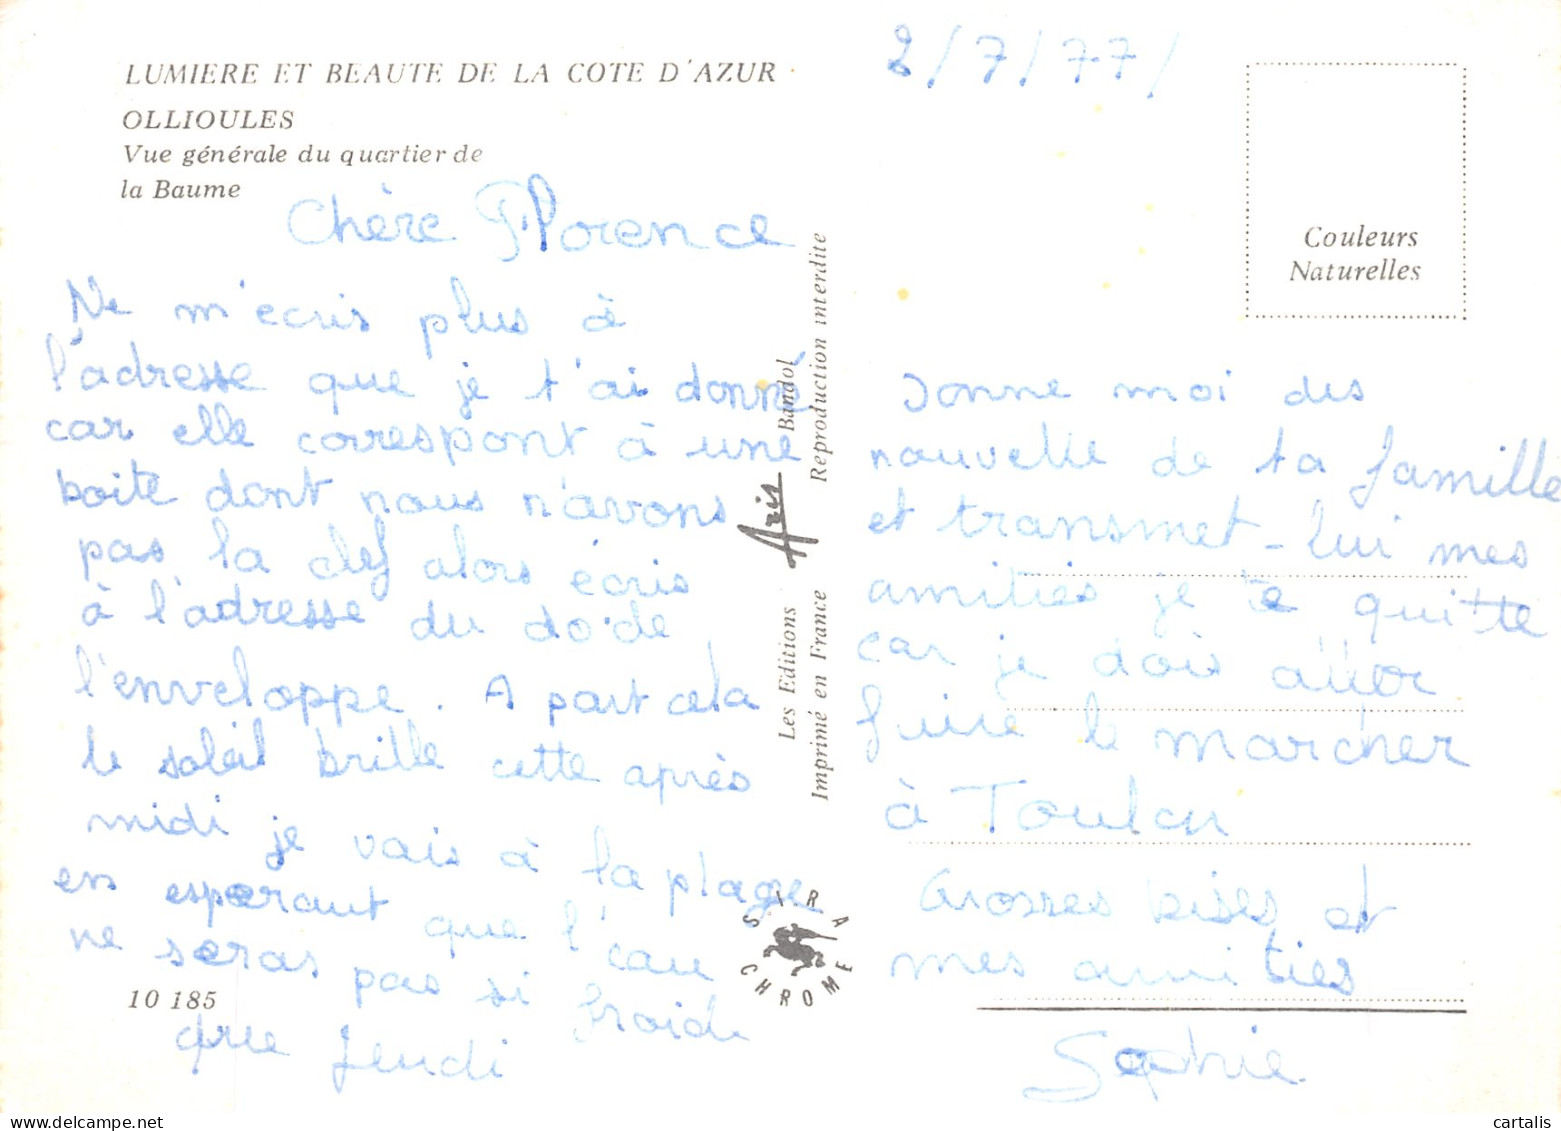 LUMIERE ET BEAUTE DE LA COTE D'AZUR
OLLIOULES
Vue générale du quartier de
la Baume
Chère Florence
Ne m'ecris plus à
l'adresse que je t'ai donné
car elle correspont à une
boite dont nous n'avons
pas la clef alors écris
à l'adresse du do de
l'enveloppe. A part cela
le soleil brille cette après
midi je vais à la plage
en esperant que l'eau
ne seras pas si froide
que Jeudi
10 185
Les Editions Aris Bandol
Imprimé en France Reproduction interdite
SIRA
CHROME
2/7/77/
Couleurs
Naturelles
Donne moi des
nouvelle de ta famille
et transmet-lui mes
amitiés je te quitte
car je dois aller
faire le marcher
à Toulon
Grosses bises et
mes amities
Sophie
cartalis